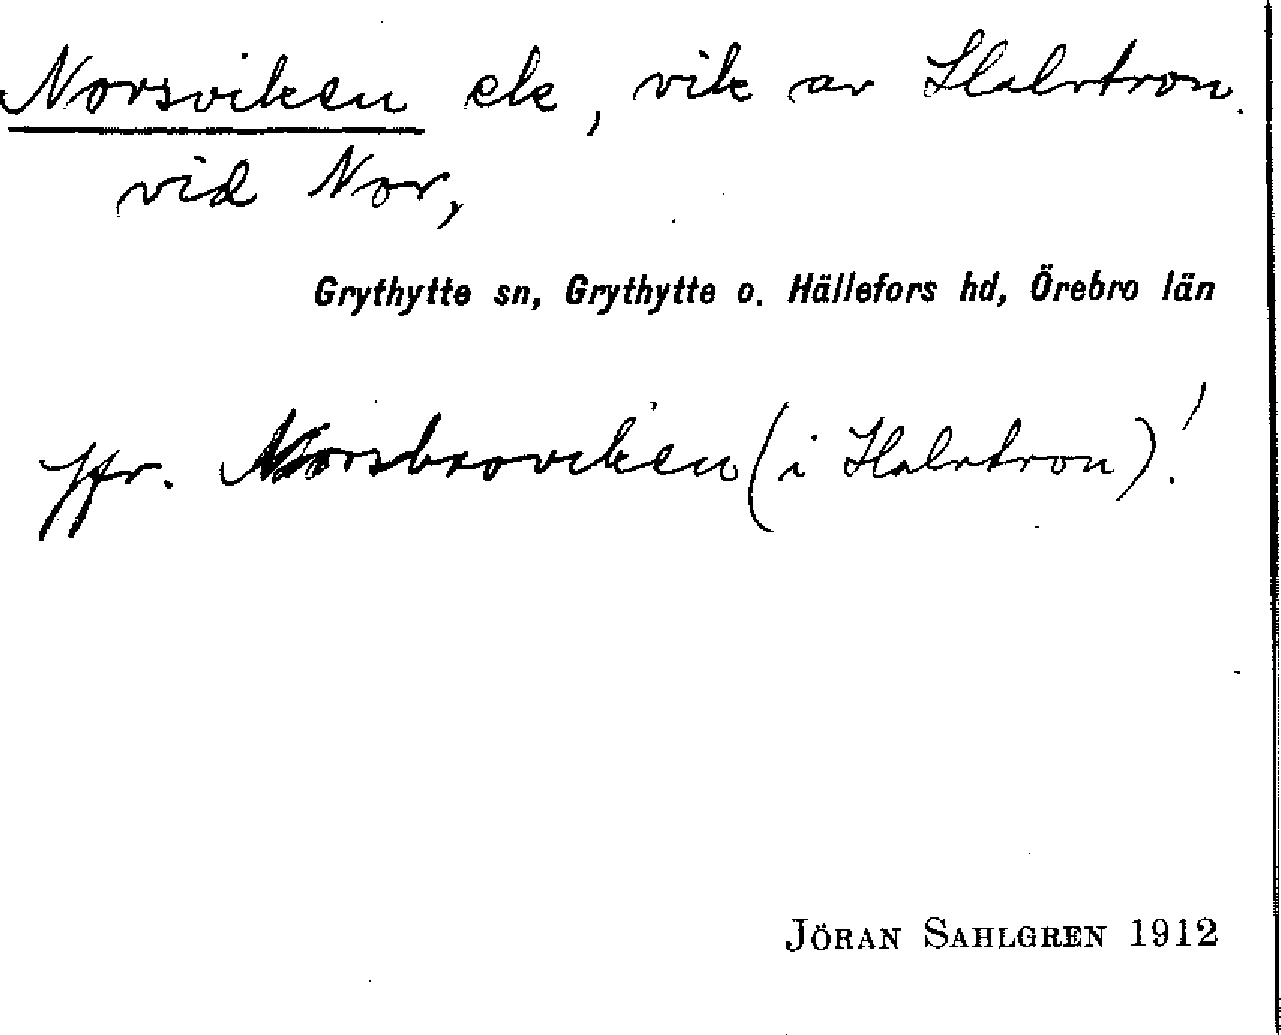 Norsviken ek, vik av Halvtron.
vid Nor,
Grythytte sn, Grythytte o. Hällefors hd, Örebro län
Jfr. Norsbroviken (i Halvtron)!
JÖRAN SAHLGREN 1912